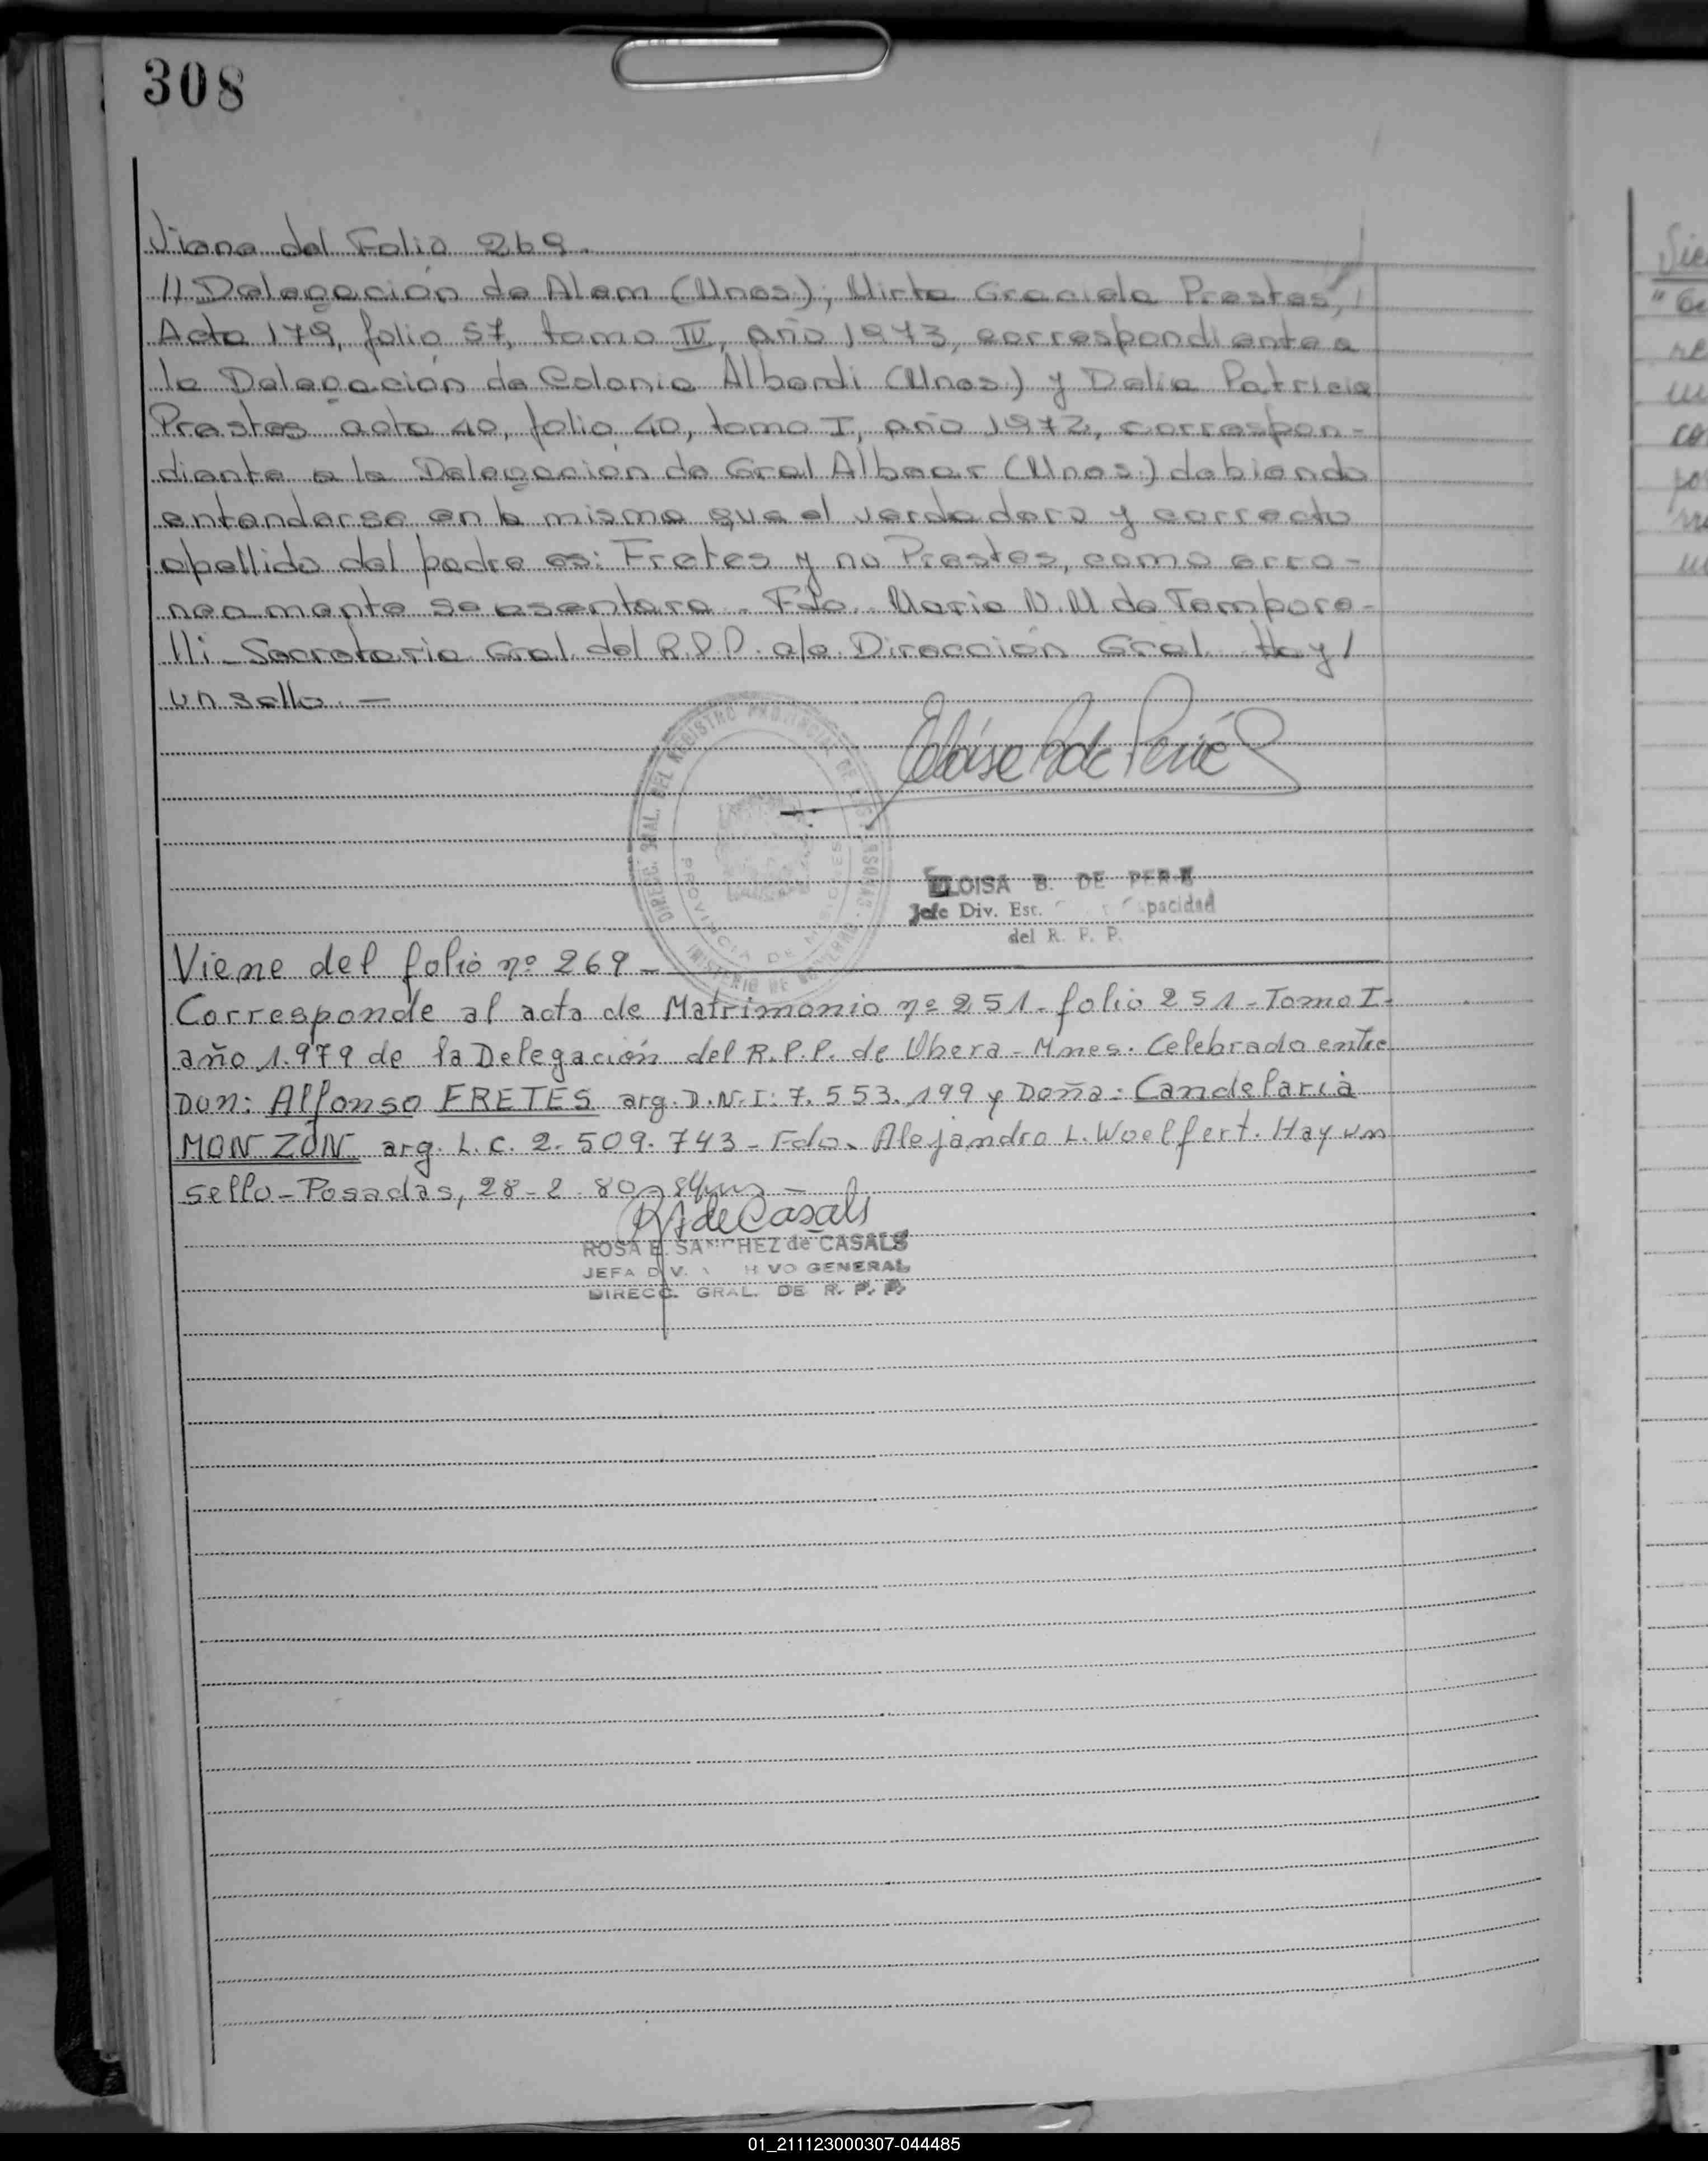 308
Viene del Folio 269.
// Delegación de Alem (Mnes); Mirta Graciela Prestes, /
Acta 179, folio 57, tomo IV, año 1973, correspondiente a
la Delegación de Colonia Alberdi (Mnes.) y Delia Patricia
Prestes acta 40, folio 40, tomo I, año 1972, correspon-
diente a la Delegación de Gral Albear (Mnes.) debiendo
entenderse en la misma que el verdadero y correcto
apellido del padre es: Fretes y no Prestes, como erro-
neamente se asentara. Fdo. Maria N. M. de Tempore-
lli - Secretaria Gral. del R.P.P. a/c. Dirección Gral. Hay /
un sello. —
DIREC. GRAL. DEL REGISTRO PROVINCIAL DE LAS PERSONAS
PROVINCIA DE MISIONES
MINISTERIO DE GOBIERNO
ELOISA B. DE PERIE
Jefe Div. Est. pacidad
del R. P. P.
Viene del folio nº 269 —
Corresponde al acta de Matrimonio nº 251 - folio 251 - Tomo I -
año 1.979 de la Delegación del R.P.P. de Obera - Mnes. Celebrado entre
Don: Alfonso FRETES arg. D.N.I: 7.553.199 y Doña: Candelaria
MONZÓN arg. L.C. 2.509.743 - Fdo. Alejandro L. Woelfert. Hay un
sello - Posadas, 28-2-80
R de Casals
ROSA E. SANCHEZ de CASALS
JEFA DIV. ARCHIVO GENERAL
DIRECC. GRAL. DE R. P. P.
01_211123000307-044485